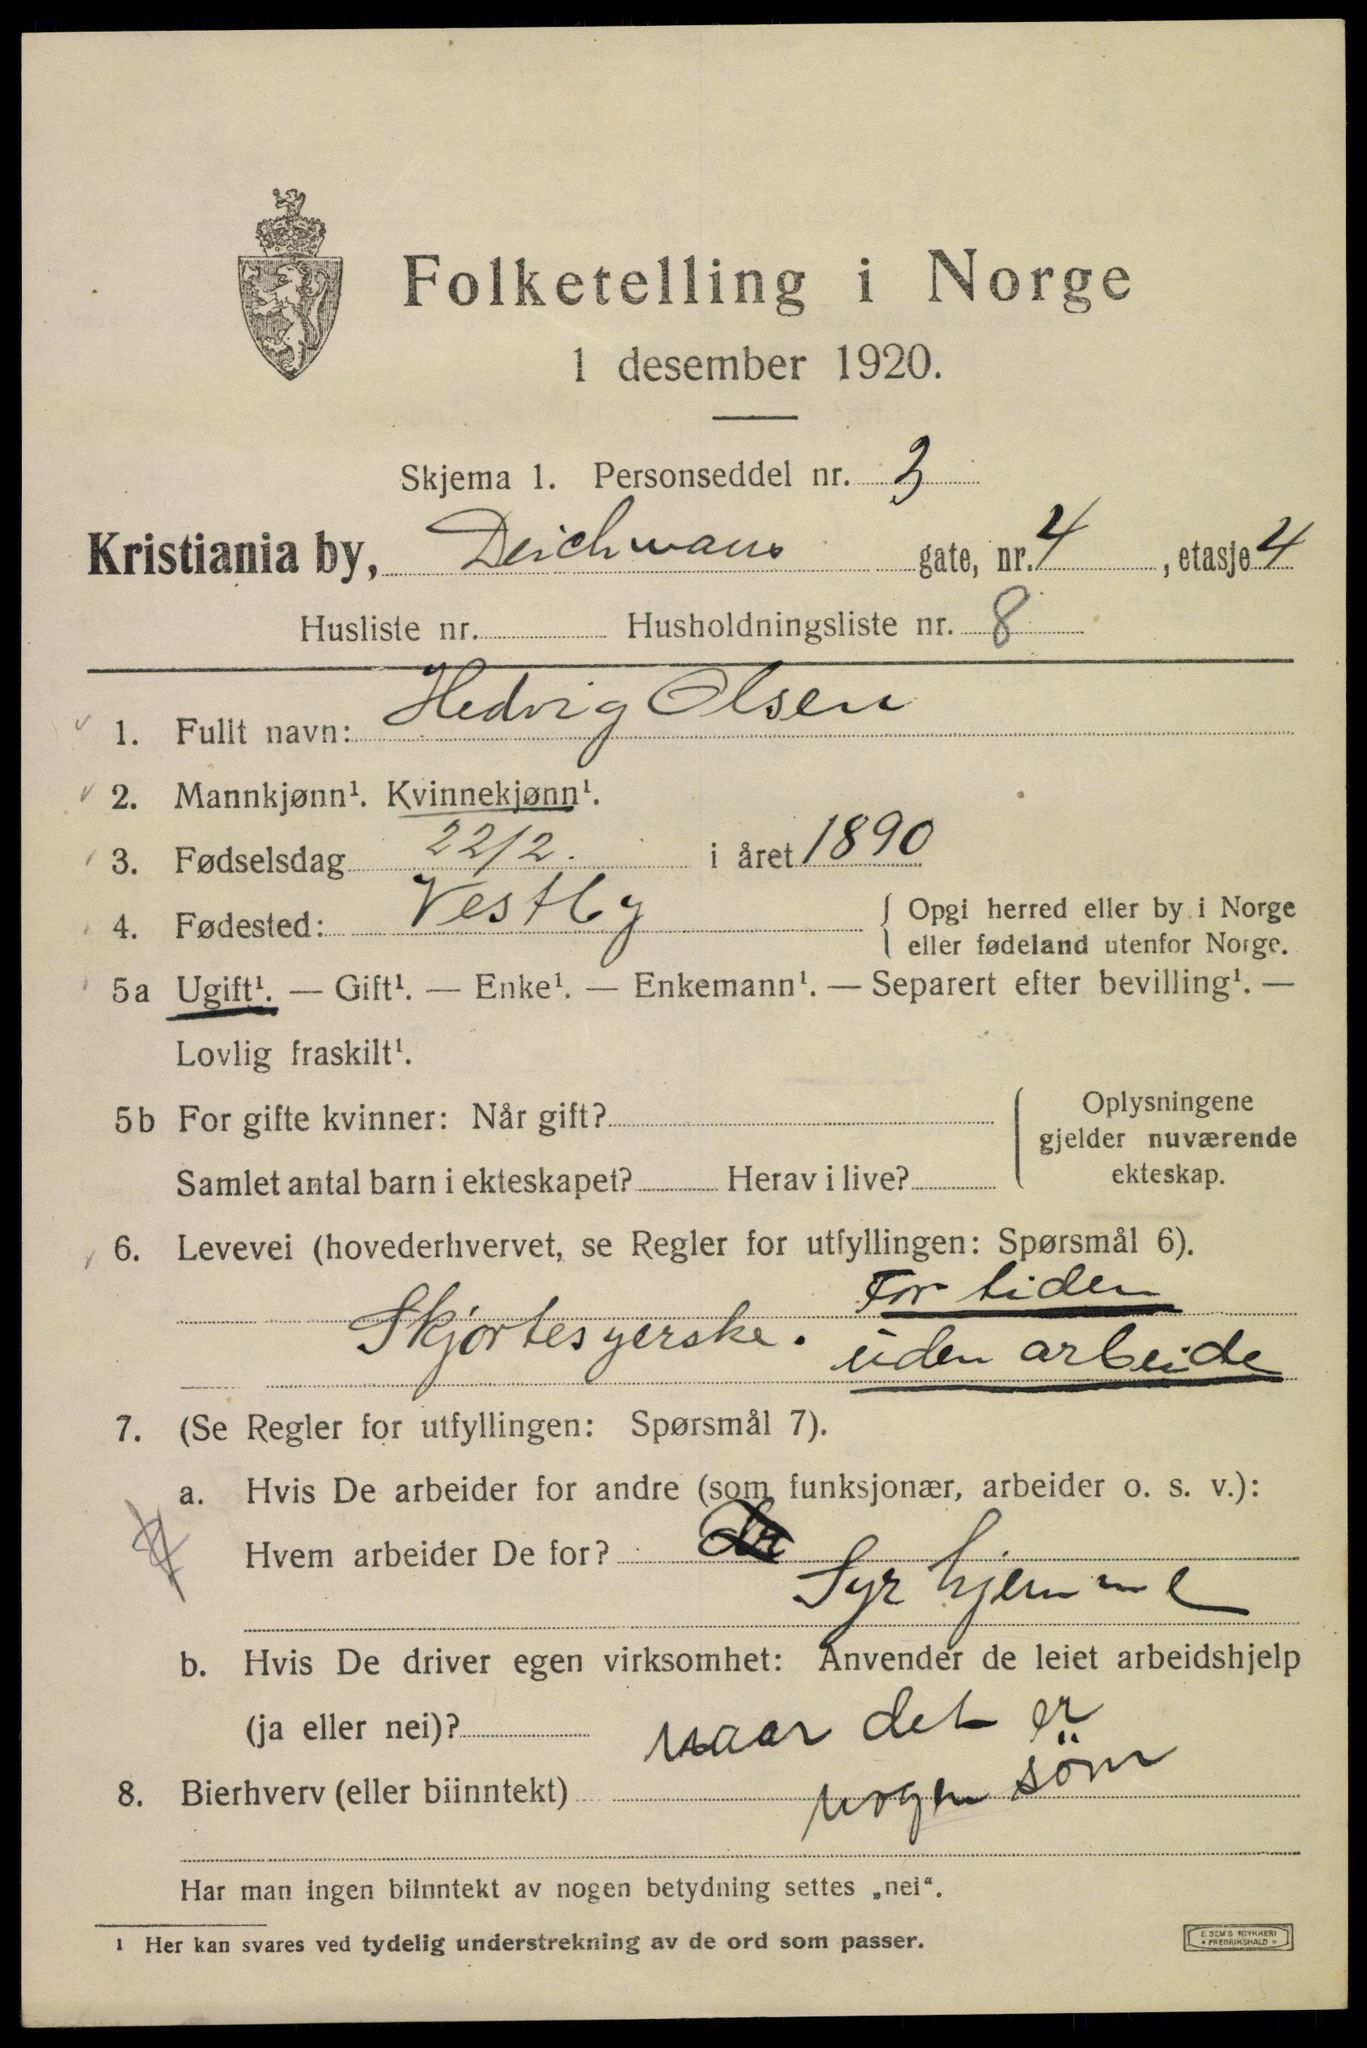 Folketelling i Norge
1 desember 1920.
Skjema 1. Personseddel nr. 3
Kristiania by, Deichmans gate, nr. 4, etasje 4
Husliste nr. Husholdningsliste nr. 8
1. Fullt navn: Hedvig Olsen
2. Mannkjønn¹. Kvinnekjønn¹.
3. Fødselsdag 22/2. i året 1890
4. Fødested: Vestby { Opgi herred eller by i Norge
eller fødeland utenfor Norge.
5a Ugift¹. — Gift¹. — Enke¹. — Enkemann¹. — Separert efter bevilling¹. —
Lovlig fraskilt¹.
5b For gifte kvinner: Når gift? Oplysningene
gjelder nuværende
Samlet antal barn i ekteskapet? Herav i live? ekteskap.
6. Levevei (hovederhvervet, se Regler for utfyllingen: Spørsmål 6).
For tiden
Skjortesyerske. uden arbeide
7. (Se Regler for utfyllingen: Spørsmål 7).
a. Hvis De arbeider for andre (som funksjonær, arbeider o. s. v.):
Hvem arbeider De for?
Syr hjemme
b. Hvis De driver egen virksomhet: Anvender de leiet arbeidshjelp
(ja eller nei)? naar det er
8. Bierhverv (eller biinntekt) nogen söm
Har man ingen biinntekt av nogen betydning settes „nei“.
¹ Her kan svares ved tydelig understrekning av de ord som passer.
E. SEM'S TRYKKERI
* FREDRIKSHALD *